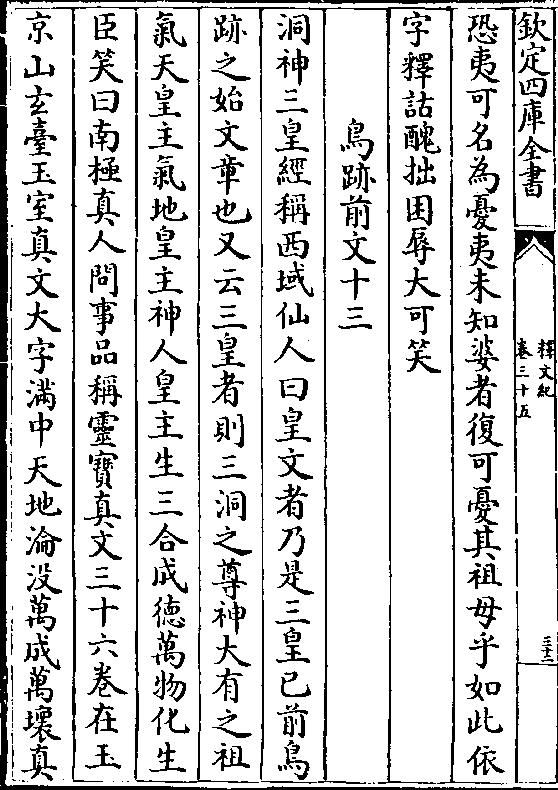 欽定四庫全書
釋文紀
卷三十五
三十二
恐夷可名為憂夷未知婆者復可憂其祖母乎如此依
字釋詁醜拙困辱大可笑
鳥跡前文十三
洞神三皇經稱西域仙人曰皇文者乃是三皇已前鳥
跡之始文章也又云三皇者則三洞之尊神大有之祖
氣天皇主氣地皇主神人皇主生三合成德萬物化生
臣笑曰南極真人問事品稱靈寶真文三十六卷在玉
京山玄臺玉室真文大字滿中天地淪没萬成萬壞真